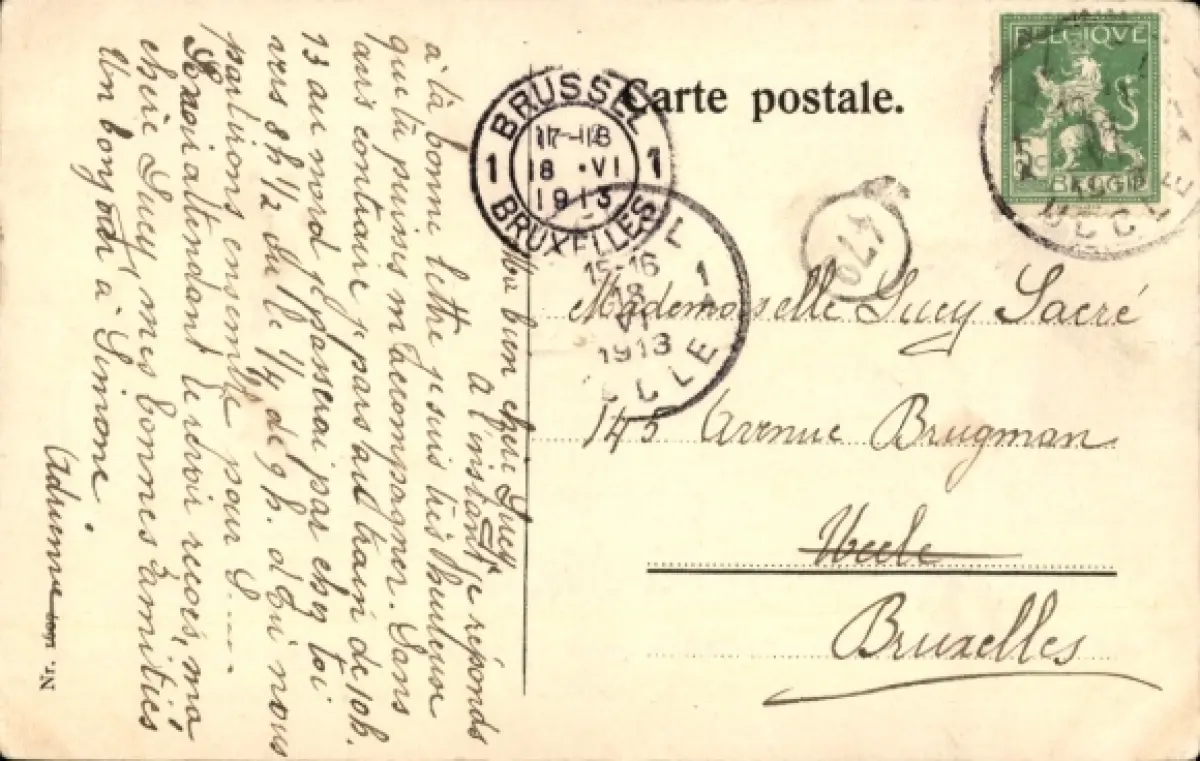 Carte postale.
BELGIQUE
5 c
BELGIË
UCCLE
BRUSSEL
1 1
17-18
18 . VI
1913
BRUXELLES
15-16
18
VI
1913
1
479
Mademoiselle Lucy Sacré
145 Avenue Brugman
Uccle
Bruxelles
Ma bien chère Lucy
A l'instant je réponds
à ta bonne lettre je suis très heureuse
que tu puisses m'accompagner. Sans
avis contraire je pars au train de 10h.
13 au nord je passerai par chez toi
vers 8h 1/2 du le 1/4 de 9 h. d'où nous
partirons ensemble pour S....
En attendant le revoir reçois, ma
chère Lucy, mes bonnes amitiés
Un bonjour à Simone
Adrienne